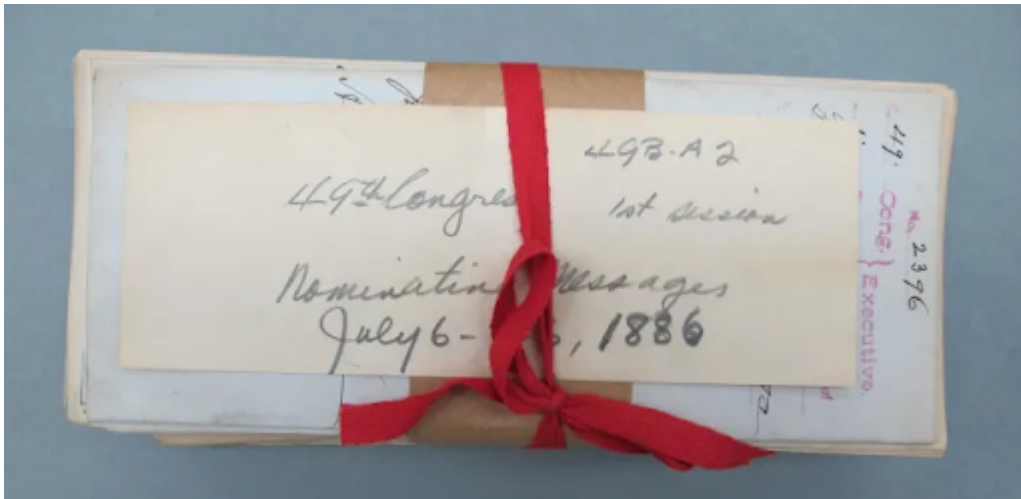 49B-A2
49th Congres
1st session
Nominatin Messages
July 6- 6, 1886
No. 2396
49. Cong. } Executive.